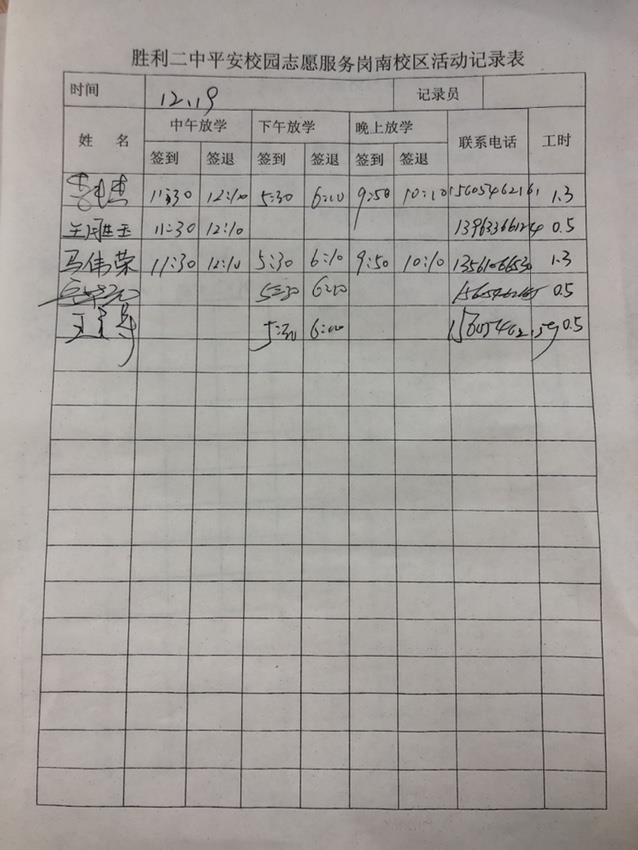 胜利二中平安校园志愿服务岗南校区活动记录表
时间 12.19 记录员
姓 名 中午放学 下午放学 晚上放学 联系电话 工时
签到 签退 签到 签退 签到 签退
11:30 12:10 5:30 6:00 9:50 10:10 15605462161 1.3
11:30 12:10 0.5
马伟荣 11:30 12:10 5:30 6:10 9:50 10:10 13561066530 1.3
5:30 6:00 0.5
5:30 6:00 0.5